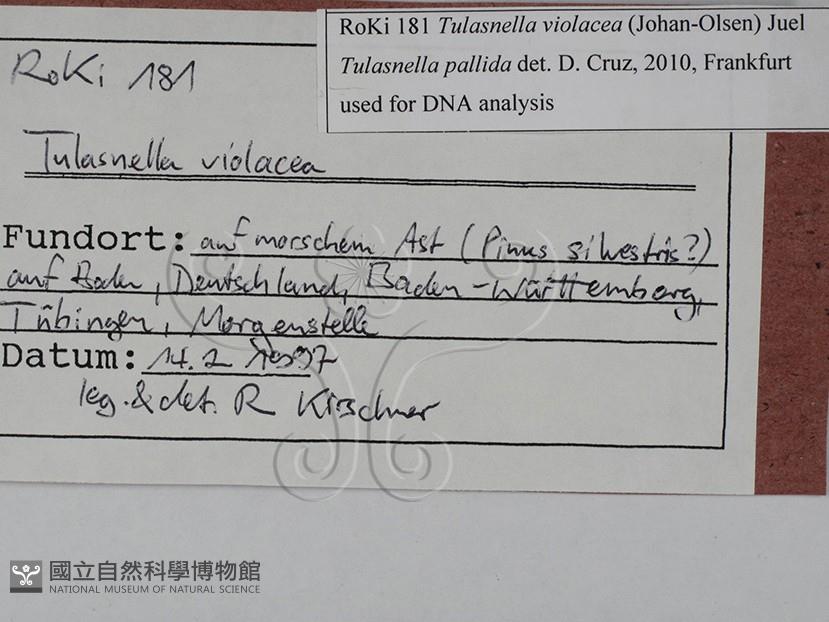 RoKi 181 Tulasnella violacea (Johan-Olsen) Juel
Tulasnella pallida det. D. Cruz, 2010, Frankfurt
used for DNA analysis
RoKi 181
Tulasnella violacea
Fundort: auf morschem Ast (Pinus silvestris?)
auf Boden, Deutschland, Baden-Württemberg,
Tübingen, Morgenstelle
Datum: 14.2 1997
leg. & det. R Kirschner
國立自然科學博物館
NATIONAL MUSEUM OF NATURAL SCIENCE